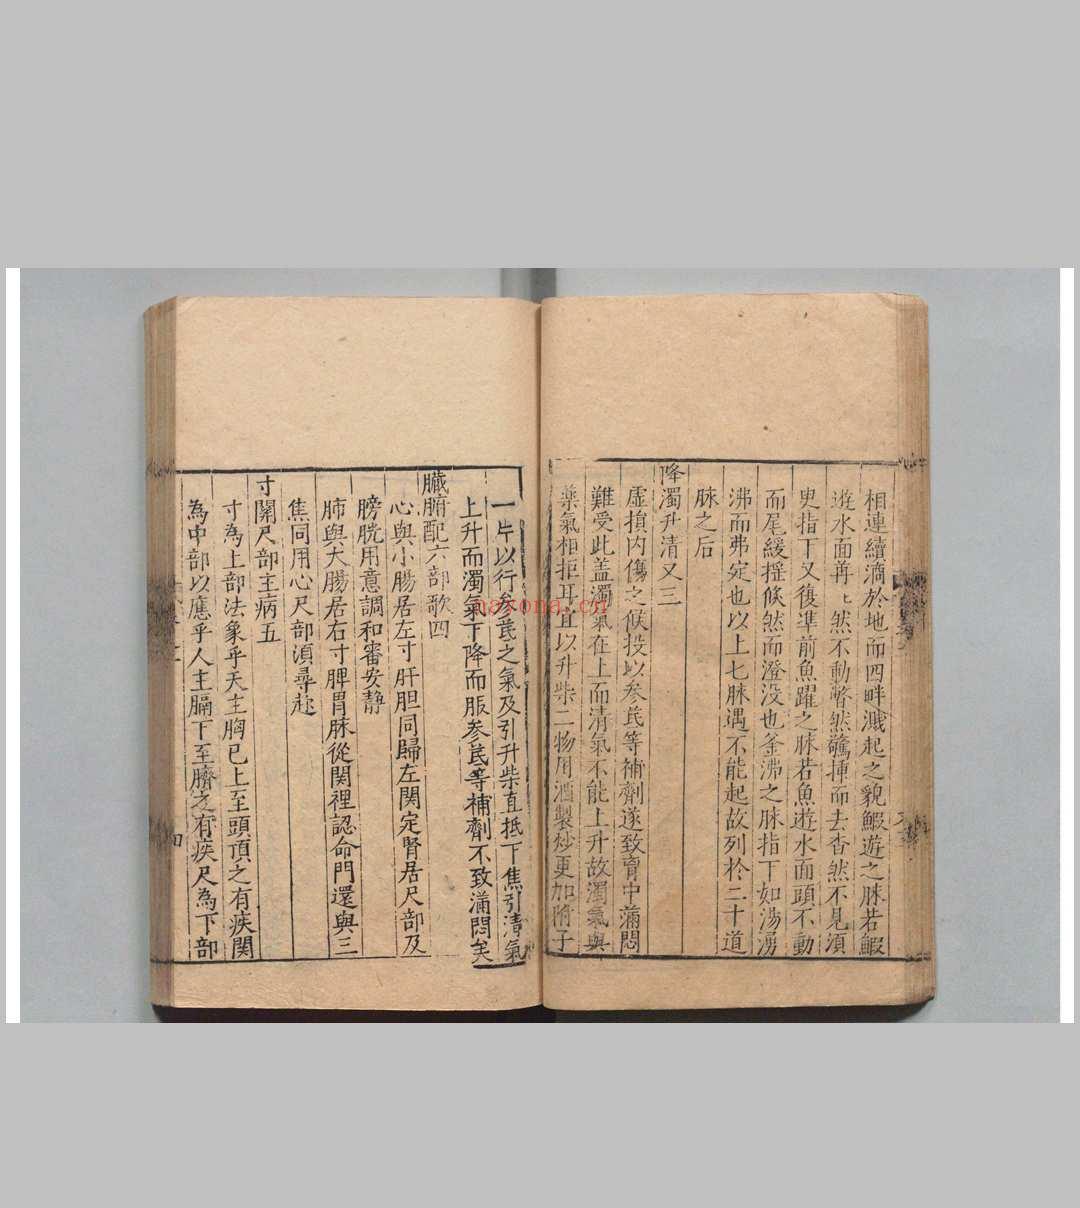 相連續滴於地而四畔濺起之貌鰕遊之脉若鰕
遊水面苒〻然不動瞥然驚揮而去杳然不見湏
臾指丁又復凖前魚躍之脉若魚遊水面頭不動
而尾緩摇倐然而澄没也釜沸之脉指下如湯湧
沸而弗㝎也以上七脉遇不能起故列於二十道
脉之后
降濁升清又三
虚損内傷之候投以參芪等補劑遂致胷中滿悶
難受此盖濁氣在上而清氣不能上升故濁氣與
藥氣相拒耳宜以升柴二物用酒製炒更加附子
一片以行參芪之氣及引升柴直抵下焦引清氣
上升而濁氣下降而服参芪等補劑不致滿悶矣
臟腑配六部歌四
心與小腸居左寸肝胆同歸左関定腎居尺部及
膀胱用意調和審安静
肺與大腸居右寸脾胃脉從関裡認命門還與三
焦同用心尺部湏尋趂
寸關尺部主病五
寸為上部法象乎天主胸已上至頭頂之有疾関
為中部以應乎人主膈下至臍之有疾尺為下部
四
nayona.cn